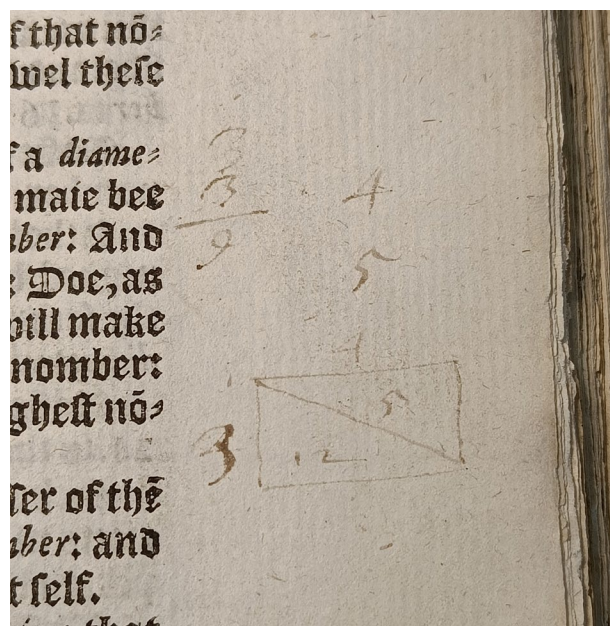 f that nō⸗
wel theſe
f a diame⸗
maie bee
nber: And
Doe, as
will make
nomber:
gheſt nō⸗
ſer of thē
nber: and
t ſelf.
that
3
3
9
4
5
4
5
3
12